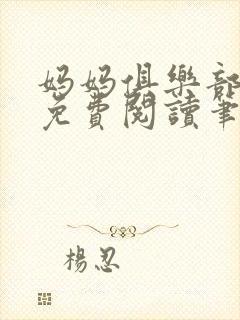 媽媽俱樂部
免費閱讀筆
楊忍